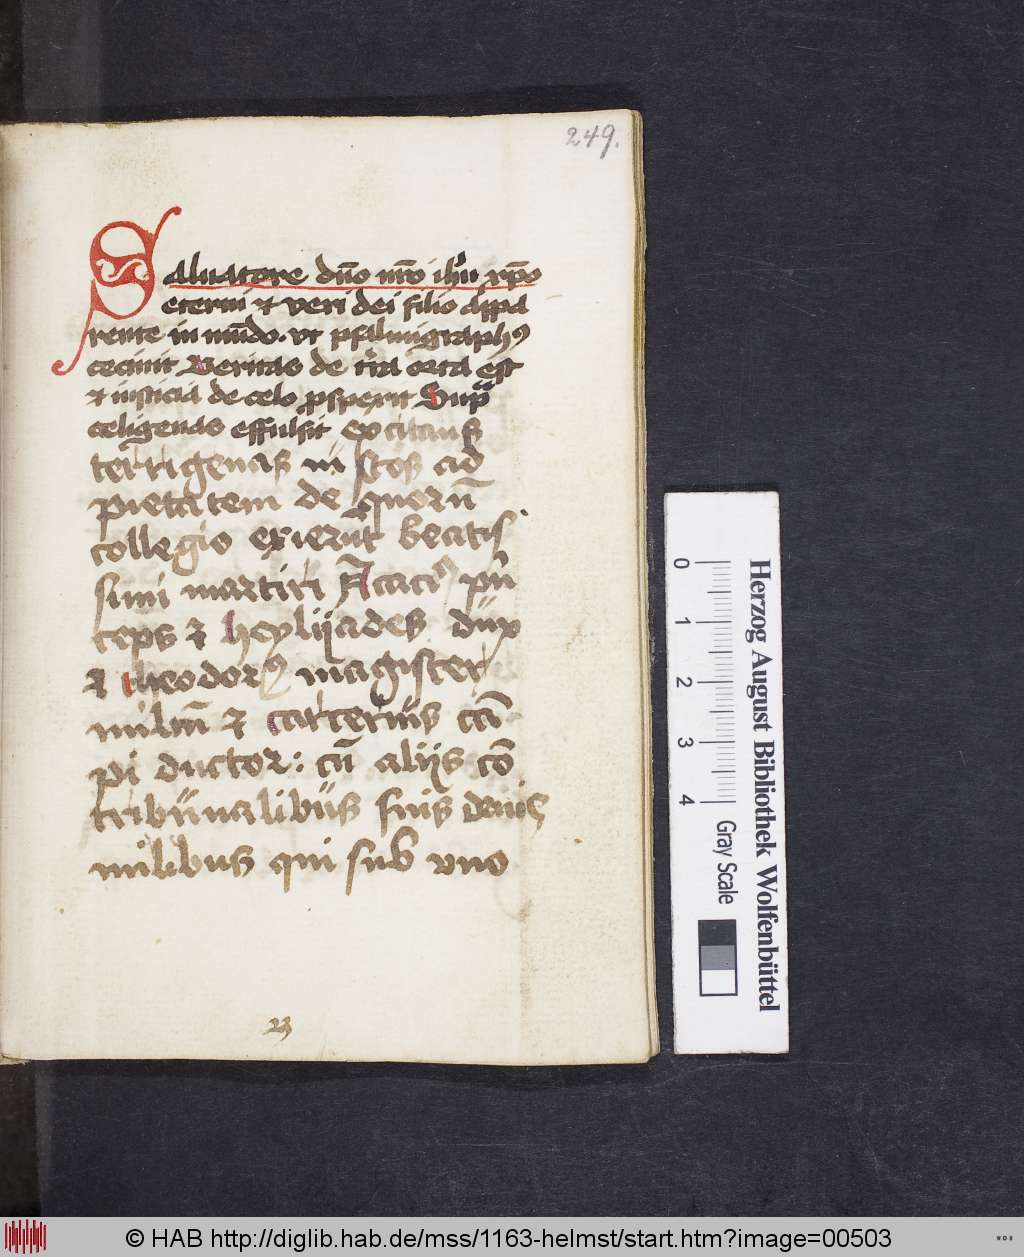 249.
Saluatore dn̄o nr̄o ihū xpō
eterni et veri dei filio appa
rente in mūdo. vt psalmigraphꝰ
cecinit Veritas de t̾ra orta est
et iusticia de celo ꝓspexit Sup̄
celigenas effulsit excitans
terrigenas in stos ad
pietatem de quorū
collegio exierūt beatis
simi martiri Acaciꝰ pn̄
ceps et heylijades dux
et theodorꝰ magister
militū et carterius cā
pi ductor: cū alijs cō
tribunalibus suis denis
milibus qui sub vno
23
0
1
2
3
4
Gray Scale
Herzog August Bibliothek Wolfenbüttel
© HAB http://diglib.hab.de/mss/1163-helmst/start.htm?image=00503